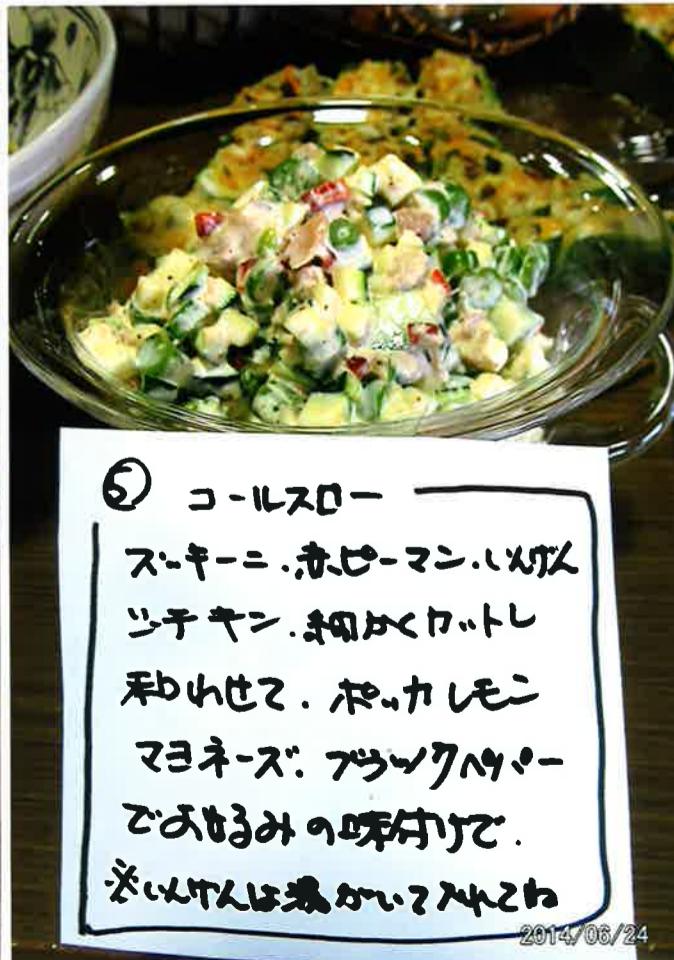 ⑤ コールスロー
ズッキーニ.赤ピーマン.いんげん
シーチキン.細かくカットし
和わせて.ポッカレモン
マヨネーズ.ブラックペッパー
でお好みの味付けで.
※いんげんは湯がいて入れてね
2014/06/24